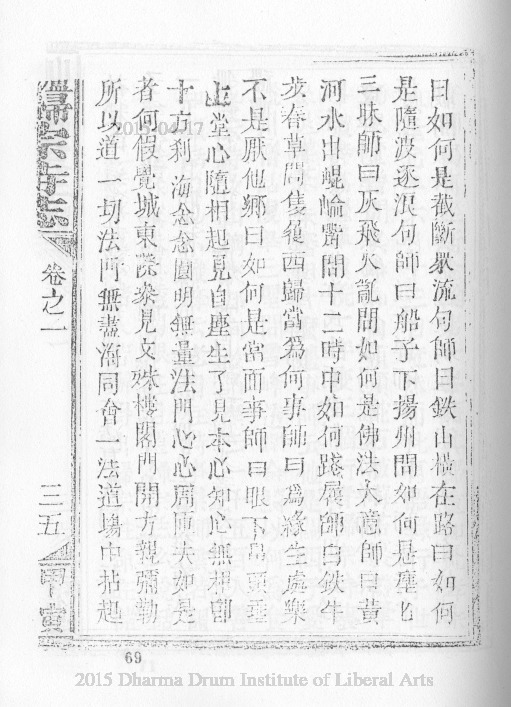 曰如何是截斷眾流句師曰鉄山橫在路曰如何
是隨波逐浪句師曰船子下揚州問如何是塵七
三昧師曰灰飛火亂問如何是佛法大意師曰黃
河水出崐崘觜問十二時中如何踐履師曰鉄牛
步春草問隻履西歸當為何事師曰為緣生處樂
不是厭他鄉曰如何是當面事師曰眼下鼻頭垂
上堂心隨相起見自塵生了見本心知心無相即
十方刹海念念圓明無量法門心心周匝夫如是
者何假覺城東際參見文殊樓閣門開方親彌勒
所以道一切法門無盡海同會一法道場中拈起
歸宗寺志
卷之一
三五
甲寅
2015-04-17
69
2015 Dharma Drum Institute of Liberal Arts